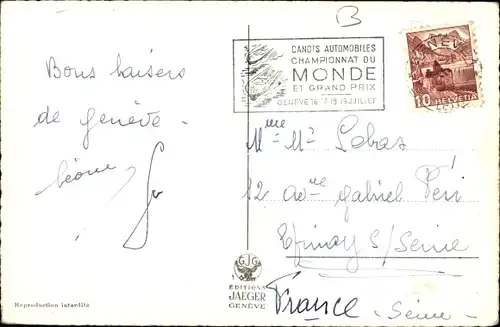 B
CANOTS AUTOMOBILES
CHAMPIONNAT DU
MONDE
ET GRAND PRIX
GENÈVE 16 17 18 19 JUILLET
GENÈVE
10 HELVETIA
Bons baisers
de Genève -
Mme Mr Lebas
12 ave gabriel Péri
Epinay S/Seine
France - Seine -
GJG
ÉDITIONS
JAEGER
GENÈVE
Reproduction interdite